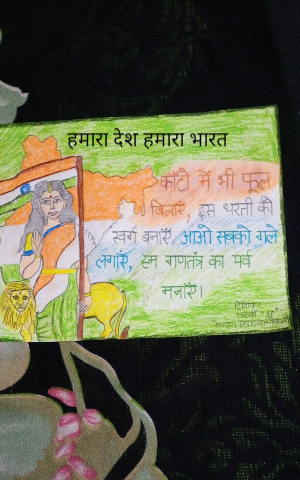 हमारा देश हमारा भारत
काँटो में भी फूल
खिलाएँ, इस धरती को
स्वर्ग बनाएँ, आओ सबको गले
लगाएँ, हम गणतंत्र का पर्व
मनाएँ।